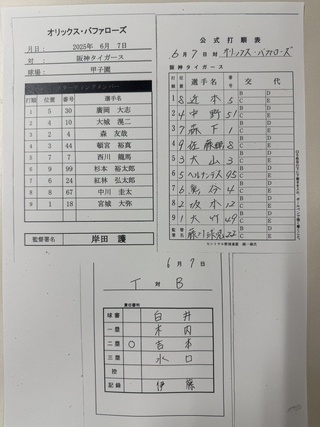 オリックス・バファローズ
月日： 2025年 6月 7日
対： 阪神タイガース
球場： 甲子園
スターティングメンバー
打順 位置 番号 選手名
1 5 30 廣岡 大志
2 4 10 大城 滉二
3 2 4 森 友哉
4 3 44 頓宮 裕真
5 7 7 西川 龍馬
6 9 99 杉本 裕太郎
7 6 24 紅林 弘太郎
8 8 67 中川 圭太
9 1 18 宮城 大弥
監督署名 岸田 護
公式打順表
6月7日対オリックス・バファローズ
阪神タイガース
打順 位置 選手名 番号 交代
1 8 近本 5 B D C E
2 4 中野 51 B D C E
3 7 森下 1 B D C E
4 9 佐藤輝 8 B D C E
5 3 大山 3 B D C E
6 5 ヘルナンデス 95 B D C E
7 6 4 B D C E
8 2 坂本 12 B D C E
9 1 大竹 49 B D C E
監督署名 藤川球児 22
6月7日
T 対 B
責任審判
球審 白井
一塁 木内
二塁 ○ 吉本
三塁 水口
控
記録 伊藤